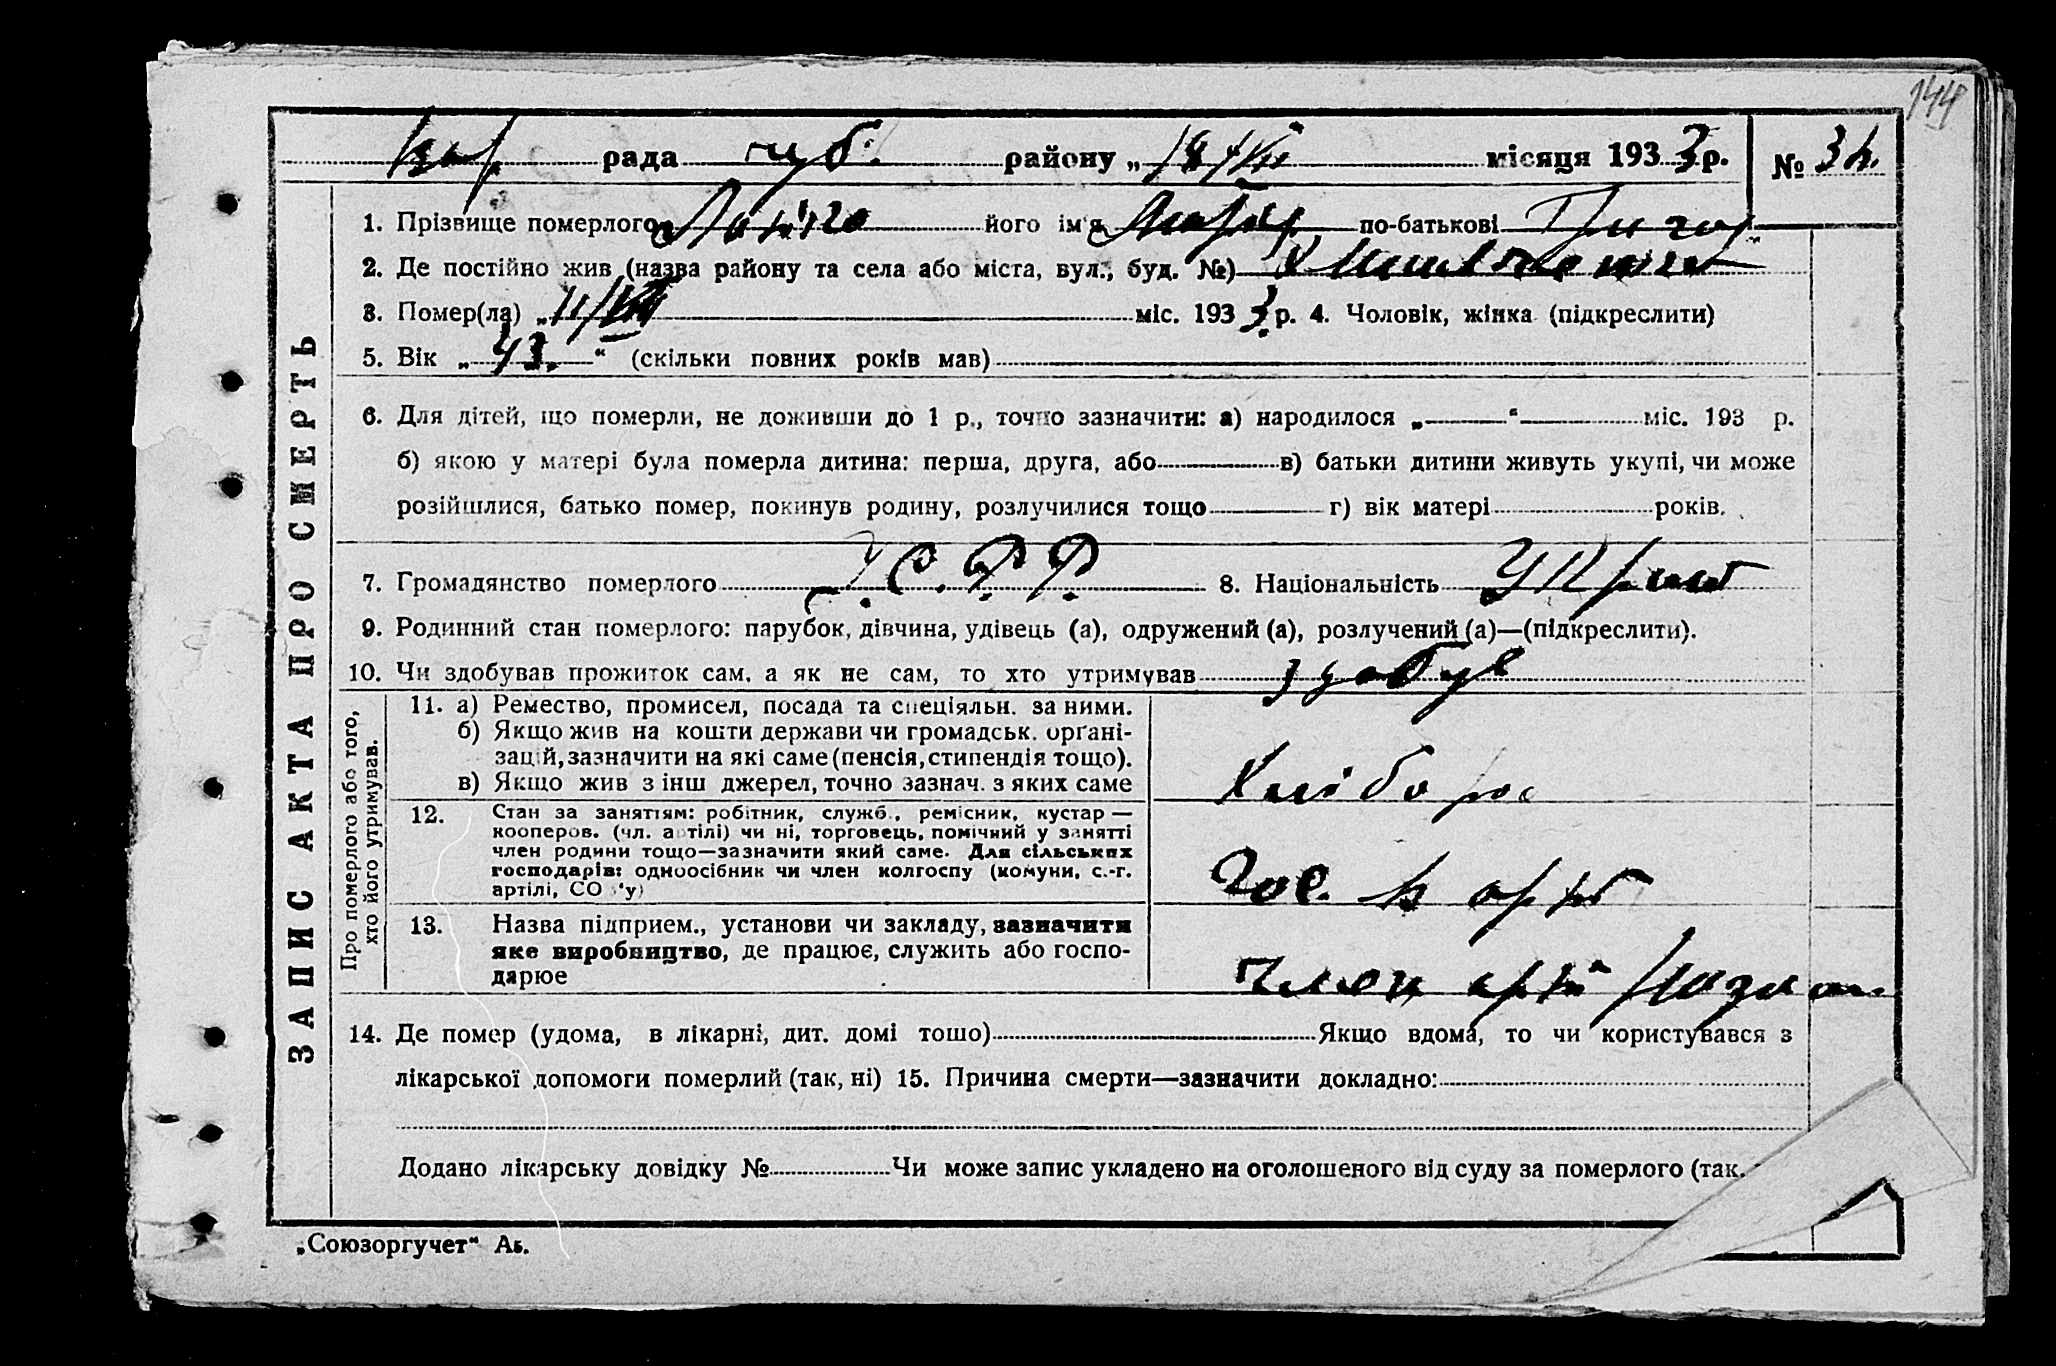 144
рада чуб. району „ 18/VII місяця 1933 р. № 34.
ЗАПИС АКТА ПРО СМЕРТЬ
1. Прізвище померлого його ім'я по-батькові Григор
2. Де постійно жив (назва району та села або міста, вул., буд. №)
3. Помер(ла) „ 11/VII міс. 1933 р. 4. Чоловік, жінка (підкреслити)
5. Вік „ 43. “ (скільки повних років мав)
6. Для дітей, що померли, не доживши до 1 р., точно зазначити: а) народилося „ “ міс. 193 р.
б) якою у матері була померла дитина: перша, друга, або в) батьки дитини живуть укупі, чи може
розійшлися, батько помер, покинув родину, розлучилися тощо г) вік матері років.
7. Громадянство померлого У.С.Р.Р. 8. Національність
9. Родинний стан померлого: парубок, дівчина, удівець (а), одружений (а), розлучений (а)—(підкреслити).
10. Чи здобував прожиток сам, а як не сам, то хто утримував здобув
Про померлого або того, хто його утримував.
11. а) Ремество, промисел, посада та спеціяльн. за ними.
б) Якщо жив на кошти держави чи громадськ. орґані-
зацій, зазначити на які саме (пенсія, стипендія тощо).
в) Якщо жив з інш джерел, точно зазнач. з яких саме
Хлібороб
12. Стан за заняттям: робітник, служб., ремісник, кустар —
кооперов. (чл. артілі) чи ні, торговець, помічний у занятті
член родини тощо—зазначити який саме. Для сільських
господарів: одноосібник чи член колгоспу (комуни, с.-г.
артілі, СО у)
13. Назва підприєм., установи чи закладу, зазначити
яке виробництво, де працює, служить або госпо-
дарює
член арт
14. Де помер (удома, в лікарні, дит. домі тошо) Якщо вдома, то чи користувався з
лікарської допомоги померлий (так, ні) 15. Причина смерти—зазначити докладно:
Додано лікарську довідку № Чи може запис укладено на оголошеного від суду за померлого (так.
„Союзоргучет“ Аь.